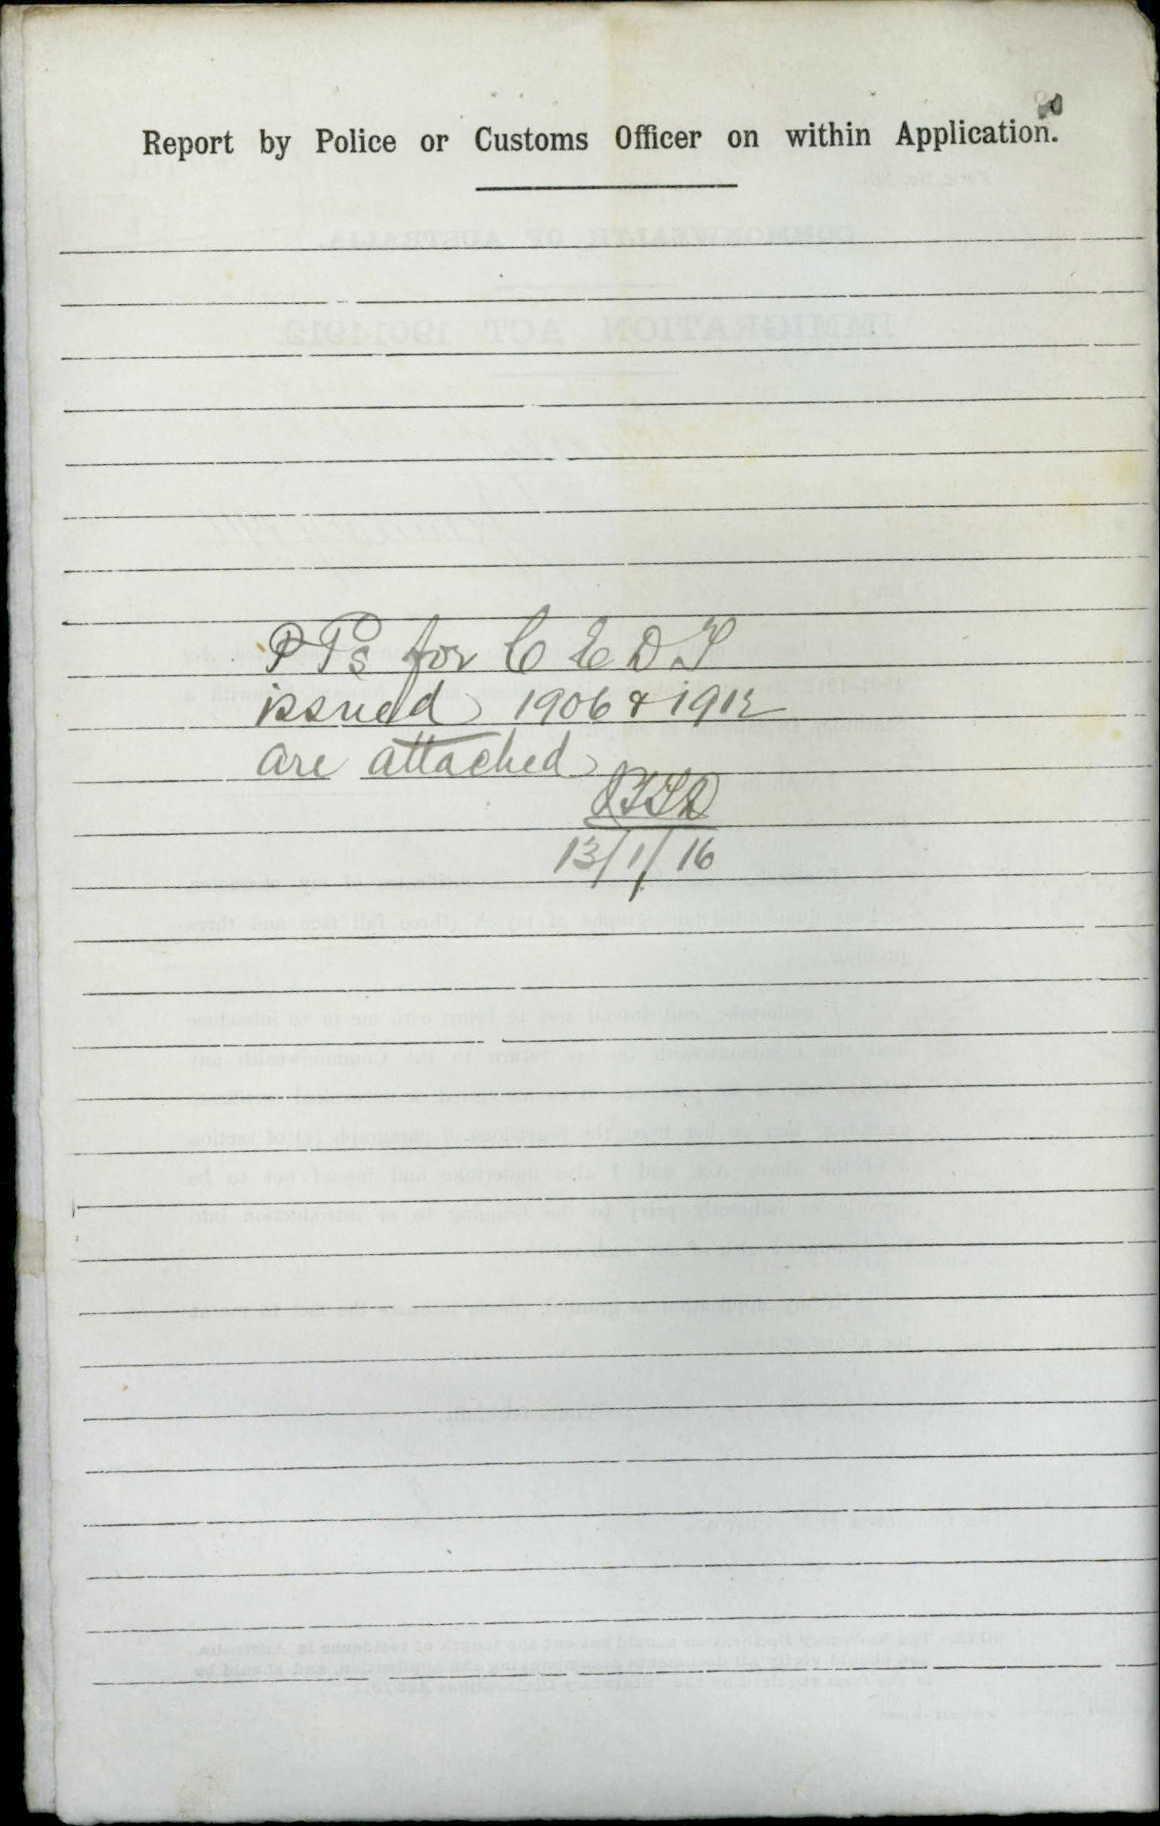 Report by Police or Customs Officer on within Application.
P Ps for C E D T
issued 1906 & 1912
are attached
13/1/16